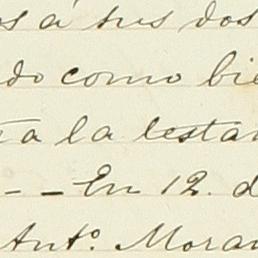 os á sus dos
do como bie
a la testa
- - En 12. d
Ant.º Mora